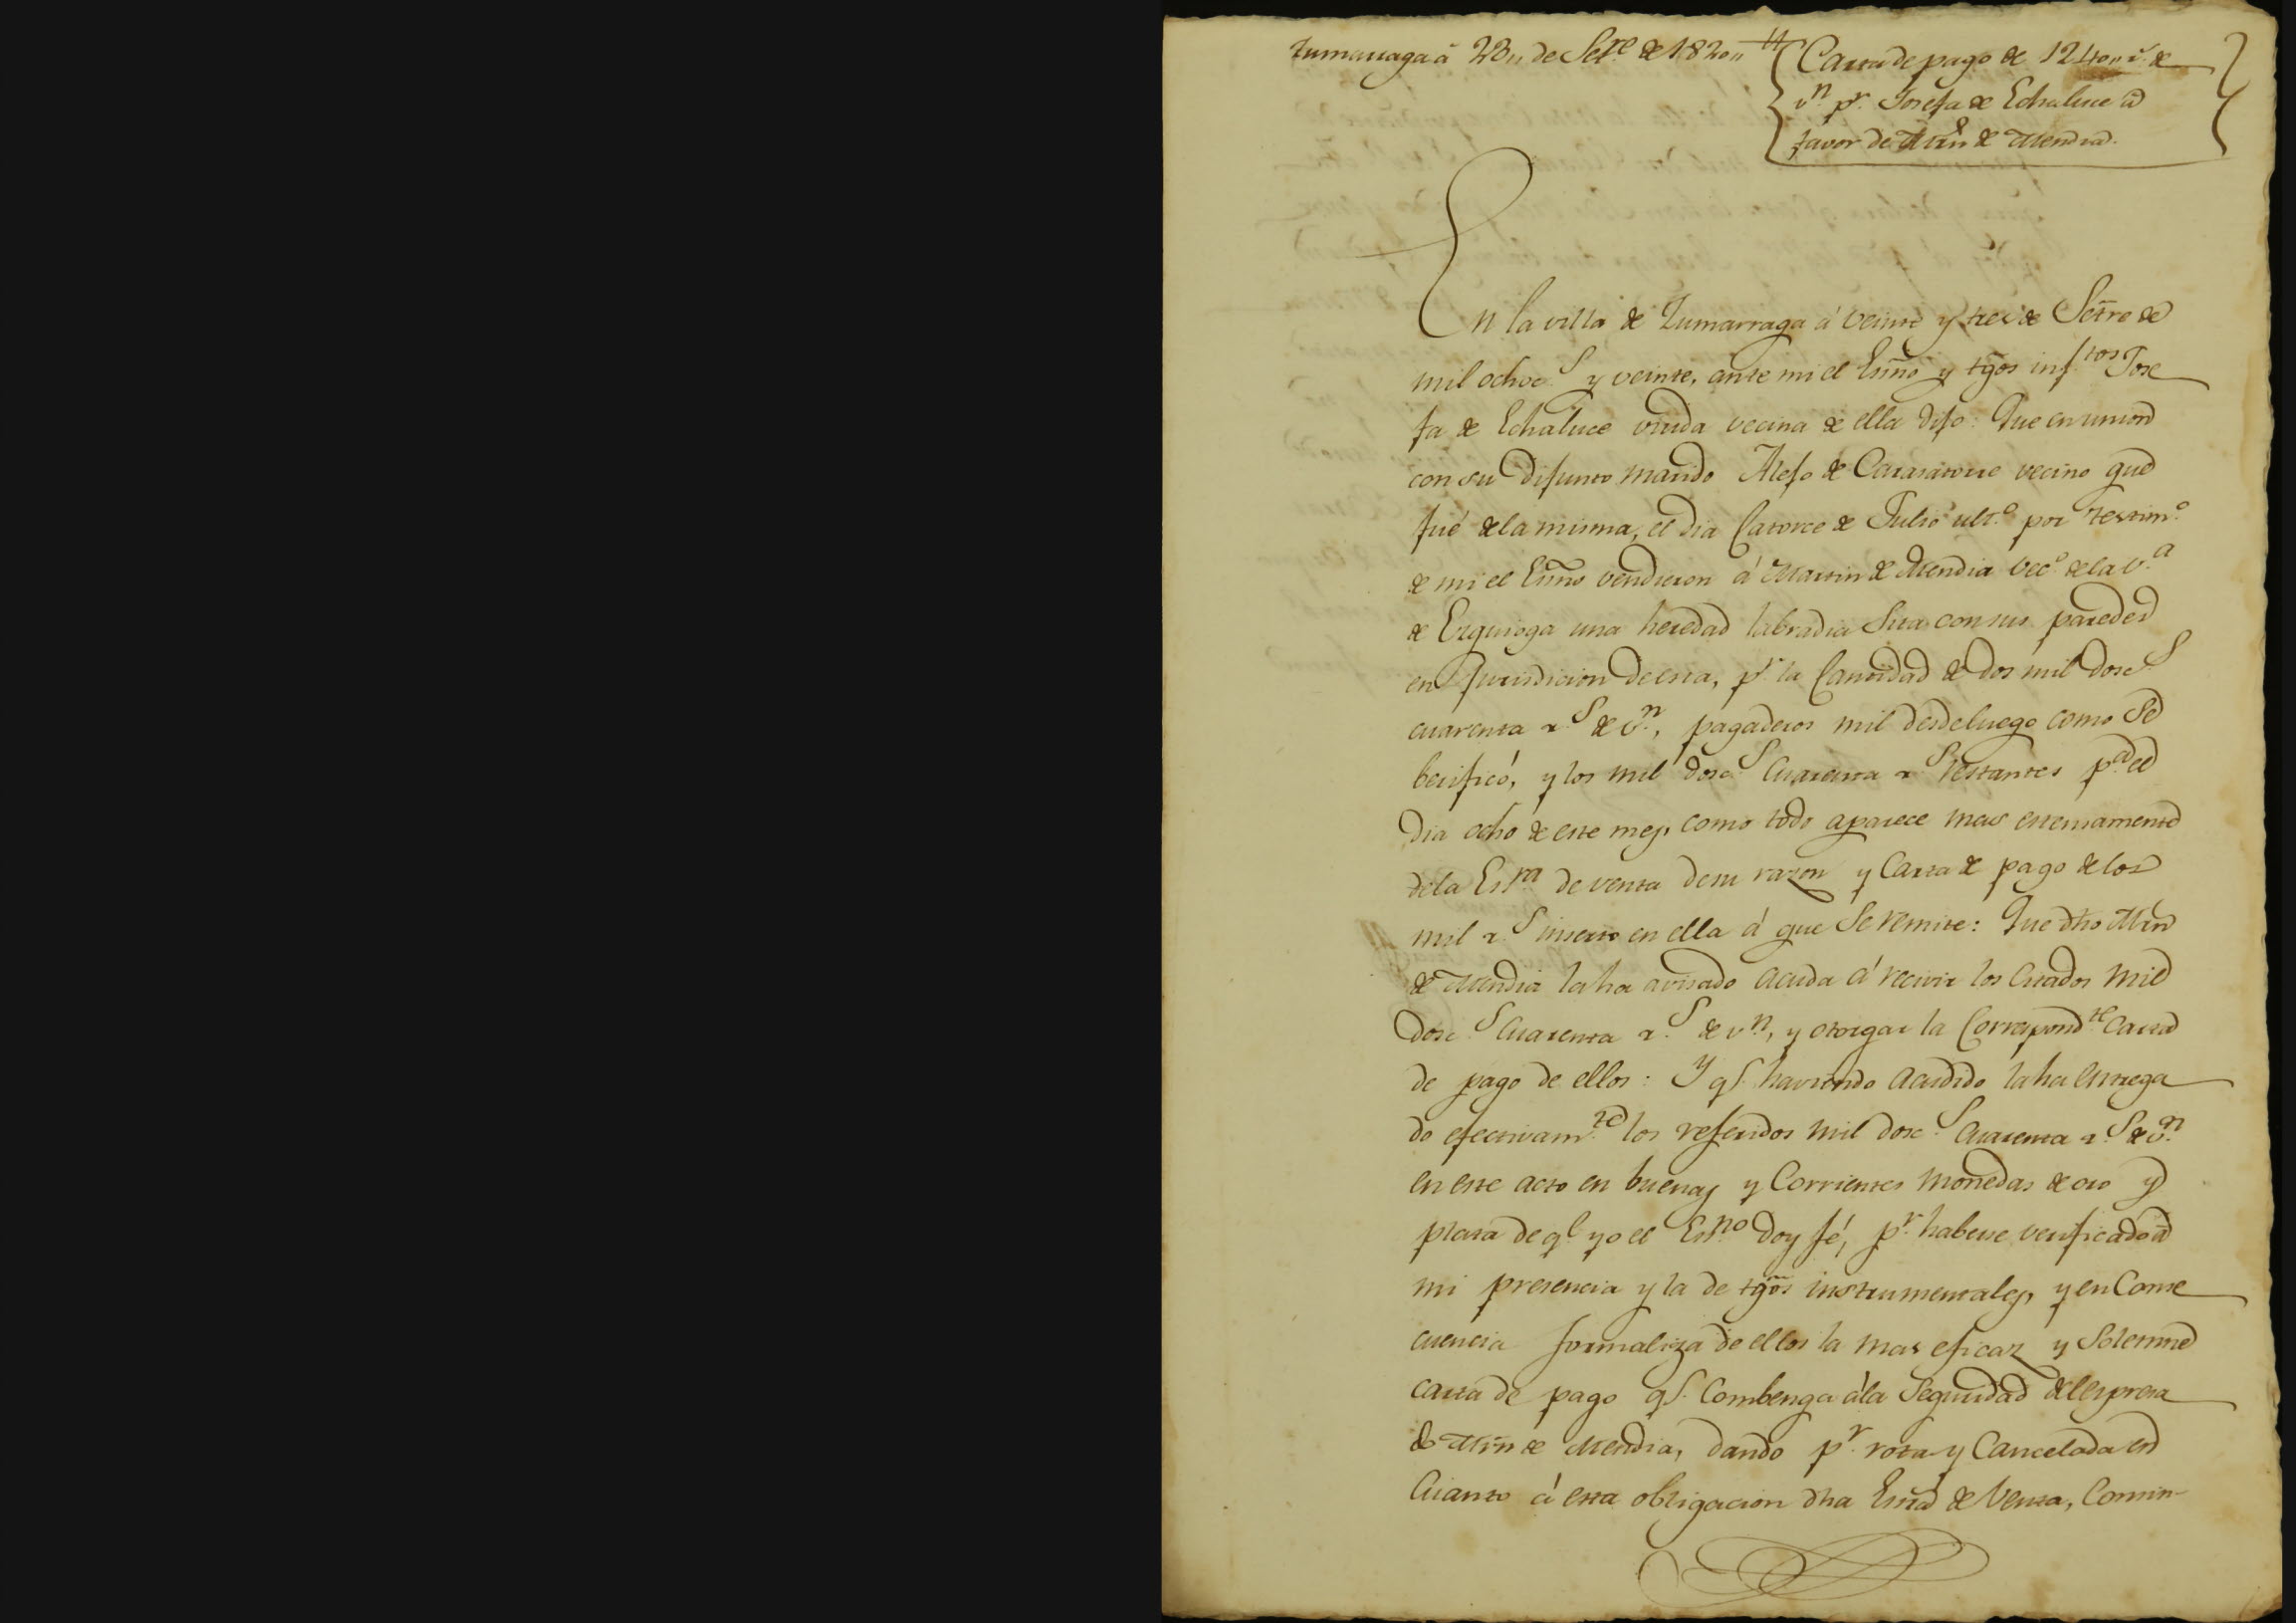 Zumarraga á 23,, de Set.re de 1820,,
Carta de pago de 1240,, r.s de
v.n p.r Josefa de Echaluce á
favor de Mrn de Mendia.
En la villa de Zumarraga á veinte y tres de Setre de
mil ochoc.s y veinte, ante mi el Esno y tgos insf.tos Jose
fa de Echaluce viuda vecina de ella dijo: Que en union
con su difunto marido Alejo de Cararatorre vecino que
fué de la misma, el dia Catorce de Julio ult.o por testim.o
de mi el Esno vendieron á Martin de Mendia vec.o de la v.a
de Ezquioga una heredad labradia sita con sus paredes
en Jurisdicion de esta, p.r la Cantidad de dos mil dosc.s
cuarenta r.s de v.n, pagaderos mil desde luego como se
berificó, y los mil dosc.s Cuarenta r.s restantes p.a el
dia ocho de este mes, como todo aparece mas estensamente
de la Es.ra de venta de su razon y Carta de pago de los
mil r.s inserto en ella á que se remite: Que dho Mrn
de Mendia la ha avisado acuda á recivir los Citados mil
dosc.s Cuarenta r.s de v.n, y otorgar la Correspond.te Carta
de pago de ellos: Y q.e haviendo acudido la ha entrega
do efectivam.te los referidos mil dosc.s Cuarenta r.s de v.n
en este acto en buenas y Corrientes monedas de oro y
plata de q.e yo el Es.no doy fé, p.r haberse verificado á
mi presencia y la de tgos instrumentales, y en Conse
cuencia formaliza de ellos la mas eficaz y Solemne
carta de pago q.e Combenga á la Seguridad del espresa
do Mrn de Mendia, dando p.r rota y Cancelada en
Cuanto á esta obligacion dha Esra de Venta, Consin-